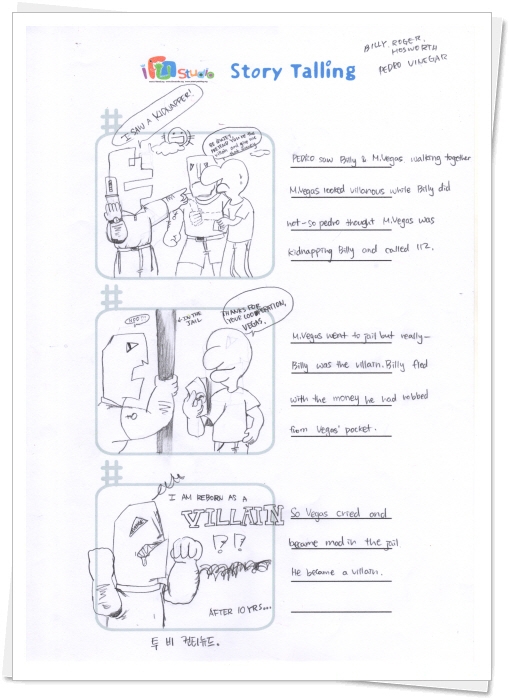 BILLY. ROGER.
HOSWORTH
PEDRO VINEGAR
Studio Story Talling
I SAW A KIDNAPPER!
PEDRO saw Billy & M.Vegas walking together
M.Vegas looked villanous while Billy did
not-so pedro thought M.Vegas was
kidnapping Billy and called 112.
NOO!!
IN THE
JAIL
THANKS FOR
YOUR COOPERATION,
VEGAS.
M.Vegas went to jail but really-
Billy was the villain. Billy fled
with the money he had robbed
from Vegas' pocket.
I AM REBORN AS A
VILLAIN
!!
So Vegas cried and
became mad in the jail
He became a villain.
AFTER 10 YRS...
투 비 컨티뉴드.